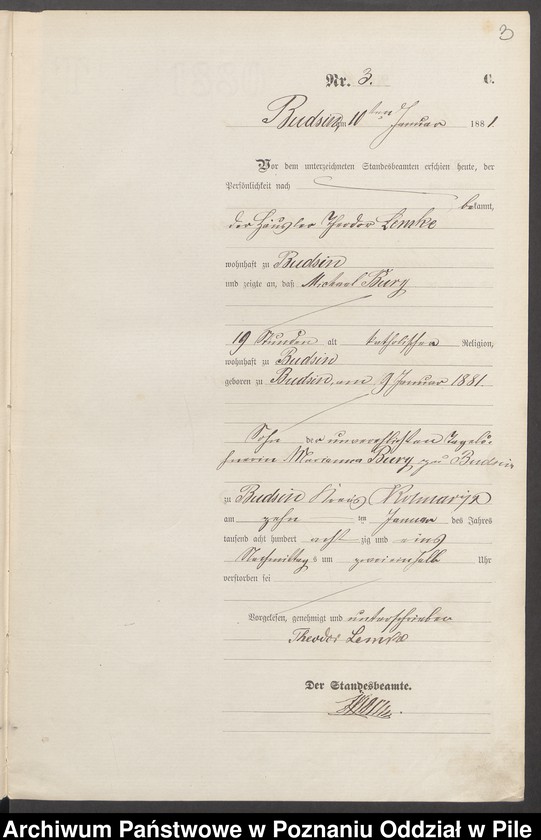 3
Nr. 3. C.
Budsin, am 10ten Januar 1881.
Vor dem unterzeichneten Standesbeamten erschien heute, der
Persönlichkeit nach
bekannt,
der Häusler Theodor Lemke
wohnhaft zu Budsin
und zeigte an, daß Michael Burg
19 Stunden alt katholischer Religion,
wohnhaft zu Budsin
geboren zu Budsin, am 9 Januar 1881.
Sohn der unverehelichten Tagelö-
hnerin Marianna Burg zu Budsin
zu Budsin Kreis Kolmar i/P
am zehn ten Januar des Jahres
tausend acht hundert acht zig und eins
Nachmittags um zweieinhalb Uhr
verstorben sei
Vorgelesen, genehmigt und unterschrieben
Theodor Lemke
Der Standesbeamte.
Archiwum Państwowe w Poznaniu Oddział w Pile